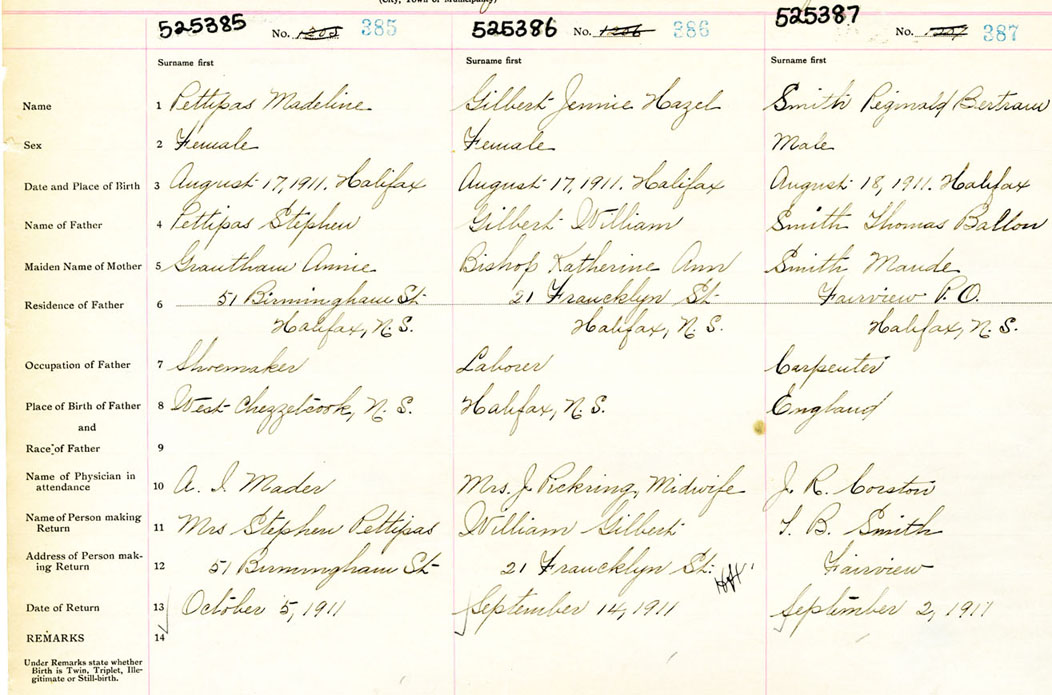 (City, Town or Municipality)
525385 No. 1205 385 525386 No. 1206 386 525387 No. 1207 387
Surname first Surname first Surname first
Name 1 Pettipas Madeline Gilbert Jennie Hazel Smith Reginald Bertram
Sex 2 Female Female Male
Date and Place of Birth 3 August 17, 1911. Halifax August 17, 1911. Halifax August 18, 1911. Halifax
Name of Father 4 Pettipas Stephen Gilbert William Smith Thomas Ballon
Maiden Name of Mother 5 Grautham Annie Bishop Katherine Ann Smith Maude
Residence of Father 6 51 Birmingham St. 21 Francklyn St. Fairview P.O.
Halifax, N.S. Halifax, N.S. Halifax, N.S.
Occupation of Father 7 Shoemaker Laborer Carpenter
Place of Birth of Father 8 West Chezzetcook, N.S. Halifax, N.S. England
and
Race of Father 9
Name of Physician in
attendance 10 A. I. Mader Mrs. J. Pickring, Midwife J. R. Corston
Name of Person making
Return 11 Mrs Stephen Pettipas William Gilbert T. B. Smith
Address of Person mak-
ing Return 12 51 Birmingham St. 21 Francklyn St. Fairview
Date of Return 13 October 5, 1911 September 14, 1911 September 2, 1911
REMARKS 14
Under Remarks state whether
Birth is Twin, Triplet, Ille-
gitimate or Still-birth.